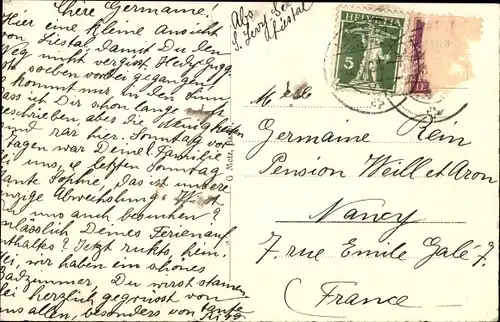 Chere Germaine!
Hier eine kleine Ansicht
von Liestal, damit Du den
Weg nicht vergisst. Hedy Gugg
ist soeben vorbei gegangen.
Es kommt mir in den Sinn
dass ich Dir schon lange
geschrieben, aber die Neuigkeiten
sind rar hier. Sonntag vor
Tagen war Deine Familie
bei uns, & letzten Sonntag
Tante Sophie, das ist unsere
einzige Abwechslung. Willst
Du uns auch besuchen?
anlässlich Deines Ferienauf
enthaltes? Jetzt rukts hein.
Hei, wir haben ein schönes
Badzimmer, Du wirst staunen.
Sei herzlich gegrüsst von
uns allen, besonders von Tante
Abs.
S. Levy
Liestal
HELVETIA
5
G. Metz, Ba
Germaine Rein
Pension Weill et Aron
Nancy
7. rue Emile Galé 7.
France